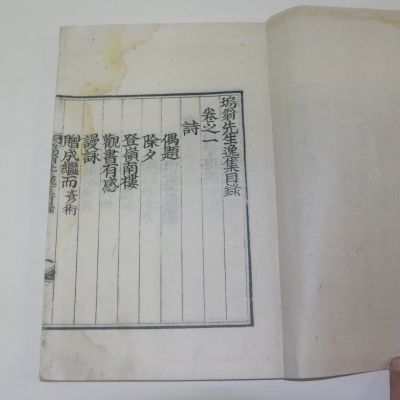 塢翁先生逸集目錄
卷之一
詩
偶題
除夕
登嶺南樓
觀書有感
謾詠
贈成繼而彥術